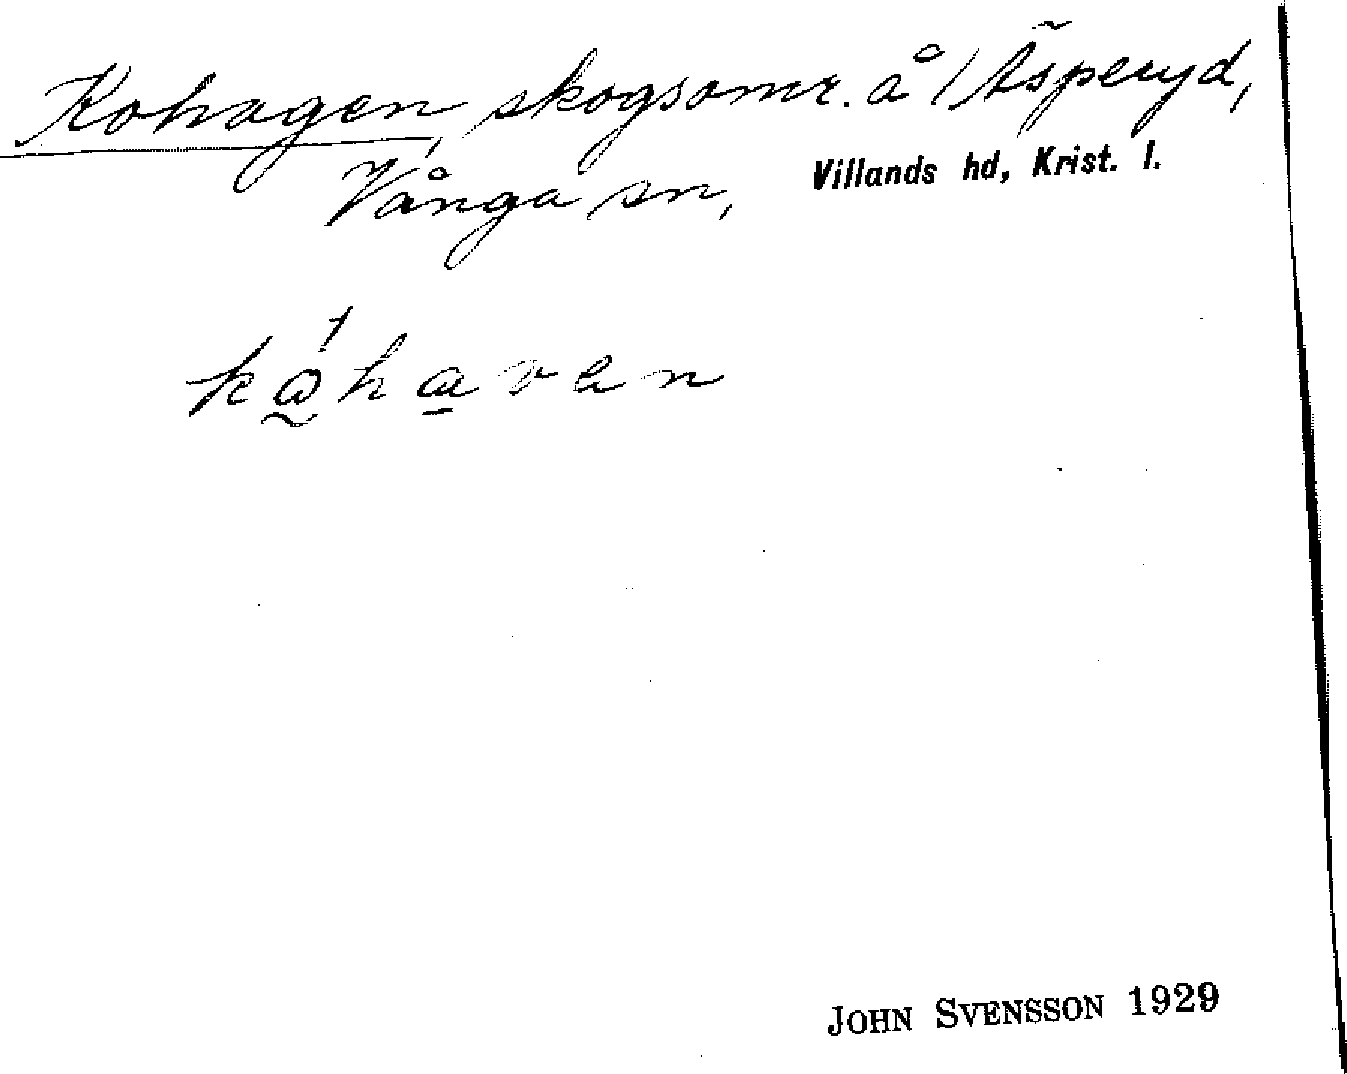 Kohagen, skogsomr. å Äsperyd,
Vånga sn, Villands hd, Krist. l.
JOHN SVENSSON 1929